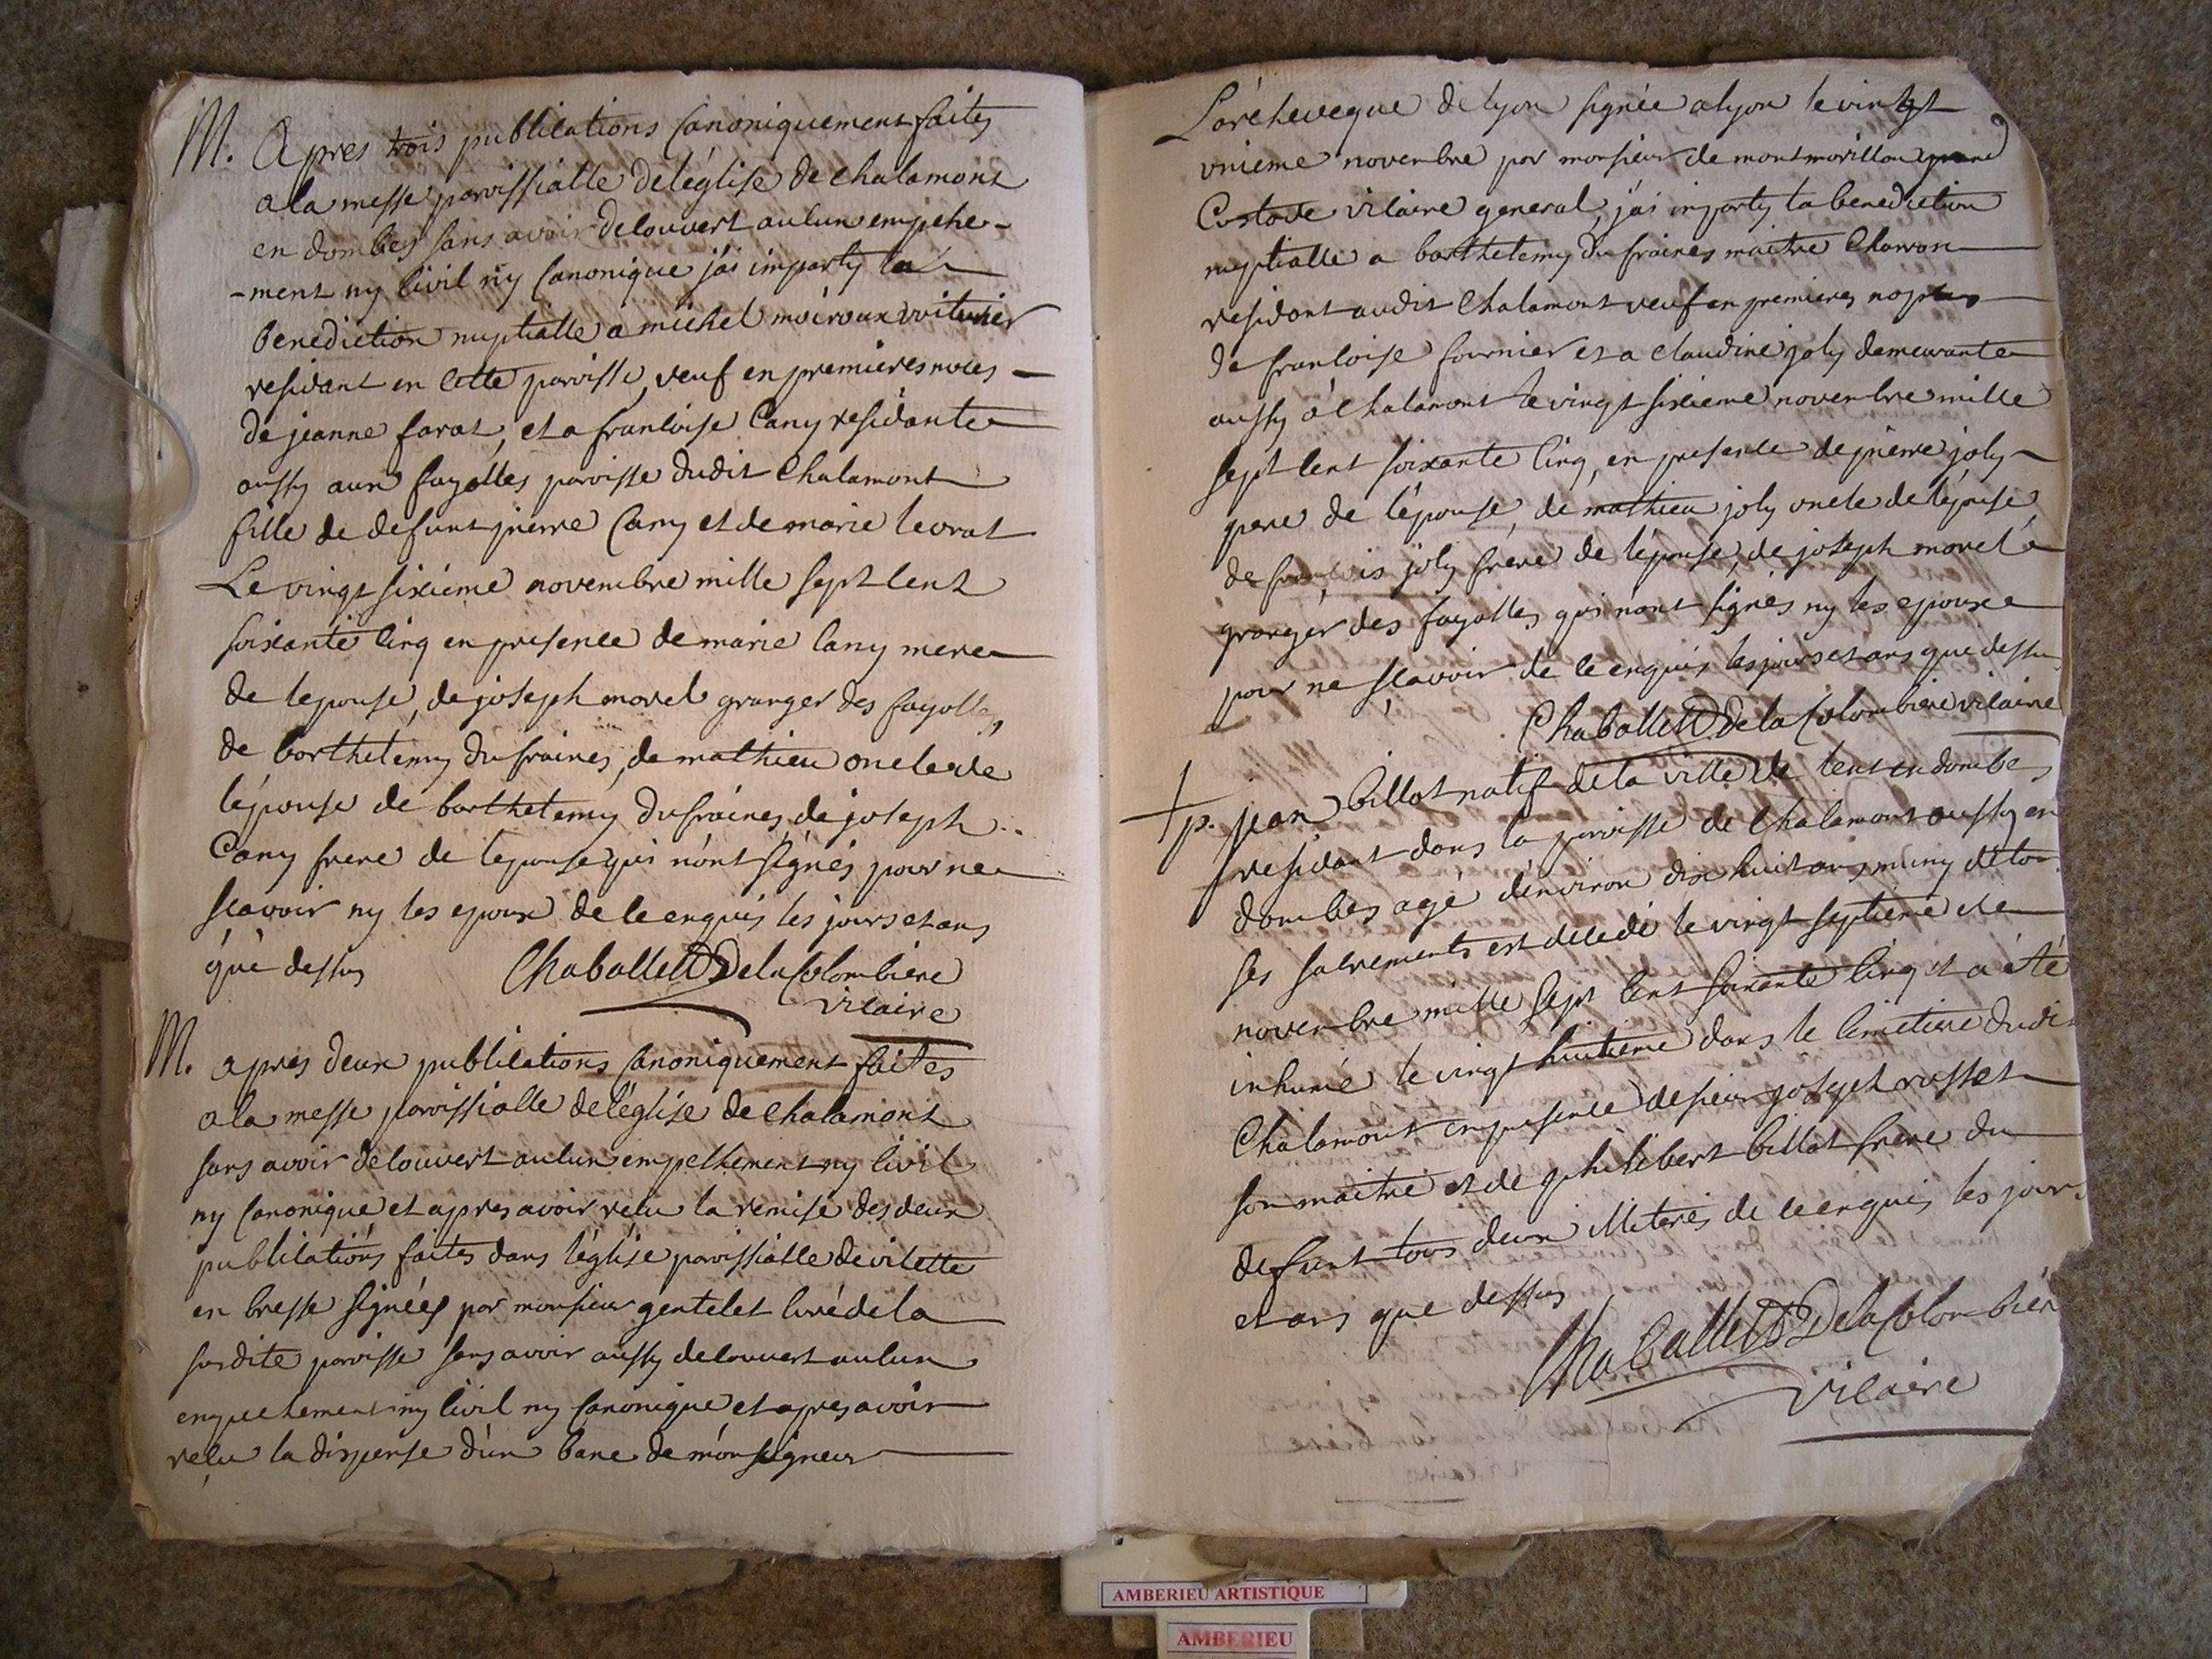 M. Apres trois publications canoniquement faites
a la messe paroissialle de léglise de chalamont
en dombes sans avoir decouvert aucun empeche-
-ment ny civil ny canonique j'ai imparty la
benediction nuptialle a michel moiroux voiturier
residant en cette paroisse, veuf en premieres noces
de jeanne farat, et a francoise Cany residante
aussy aux fayolles paroisse dudit chalamont
fille de defunt pierre Cany et de marie levrat
Le vingt sixiéme novembre mille sept cent
soixante cinq en presence de marie Cany mere
de lepouse, de joseph morel granger des fayolles,
de barthelemy dufraines, de mathieu oncle de
lépouse de barthelemy dufraines, de joseph
Cany frere de lepouse qui n'ont signés pour ne
scavoir ny les epoux de ce enquis les jours et ans
que dessus Chaballett De la Colombiere
vicaire
M. apres deux publications canoniquement faites
a la messe paroissialle de léglise de chalamont
sans avoir decouvert aucun empechement ny civil
ny canonique et apres avoir reçu la remise des deux
publications faites dans léglise paroissialle de vilette
en bresse signées par monsieur gentelet curé de la
susdite paroisse sans avoir aussy decouvert aucun
empechement ny civil ny canonique et apres avoir
reçu la dispense d'un banc de monseigneur
Larcheveque de lyon signée a lyon le vingt
unieme novembre par monsieur de montmorillon grand
Custode vicaire general, j'ai imparty la benediction
nuptialle a barthelemy dufraines maitre Charron
residant audit Chalamont veuf en premieres nopces
de francoise fournier et a claudine joly demeurante
aussy a Chalamont le vingt sixieme novembre mille
sept cent soixante cinq, en presence de pierre joly
pere de l'épouse, de mathieu joly oncle de lépouse,
de françois joly frere de lépouse, de joseph morel
granger des fayolles qui n'ont signés ny les epoux
pour ne sçavoir de ce enquis les jours et ans que dessus
Chaballett De la Colombiere vicaire
p. jean billot natif de la ville de lent en dombes
residant dans la paroisse de Chalamont aussy en
dombes agé denviron dix huit ans muny de tous
ses sacrements est decedé le vingt septieme de
novembre mille sept cent soixante cinq et a été
inhumé le vingt huitieme dans le cimetiere dudit
Chalamont en presence de sieur joseph rosset
son maitre et de philibert billot frere du
defunt tous deux illiterés de ce enquis les jours
et ans que dessus
Chaballett De la Colombier
vicaire
AMBERIEU ARTISTIQUE
AMBERIEU